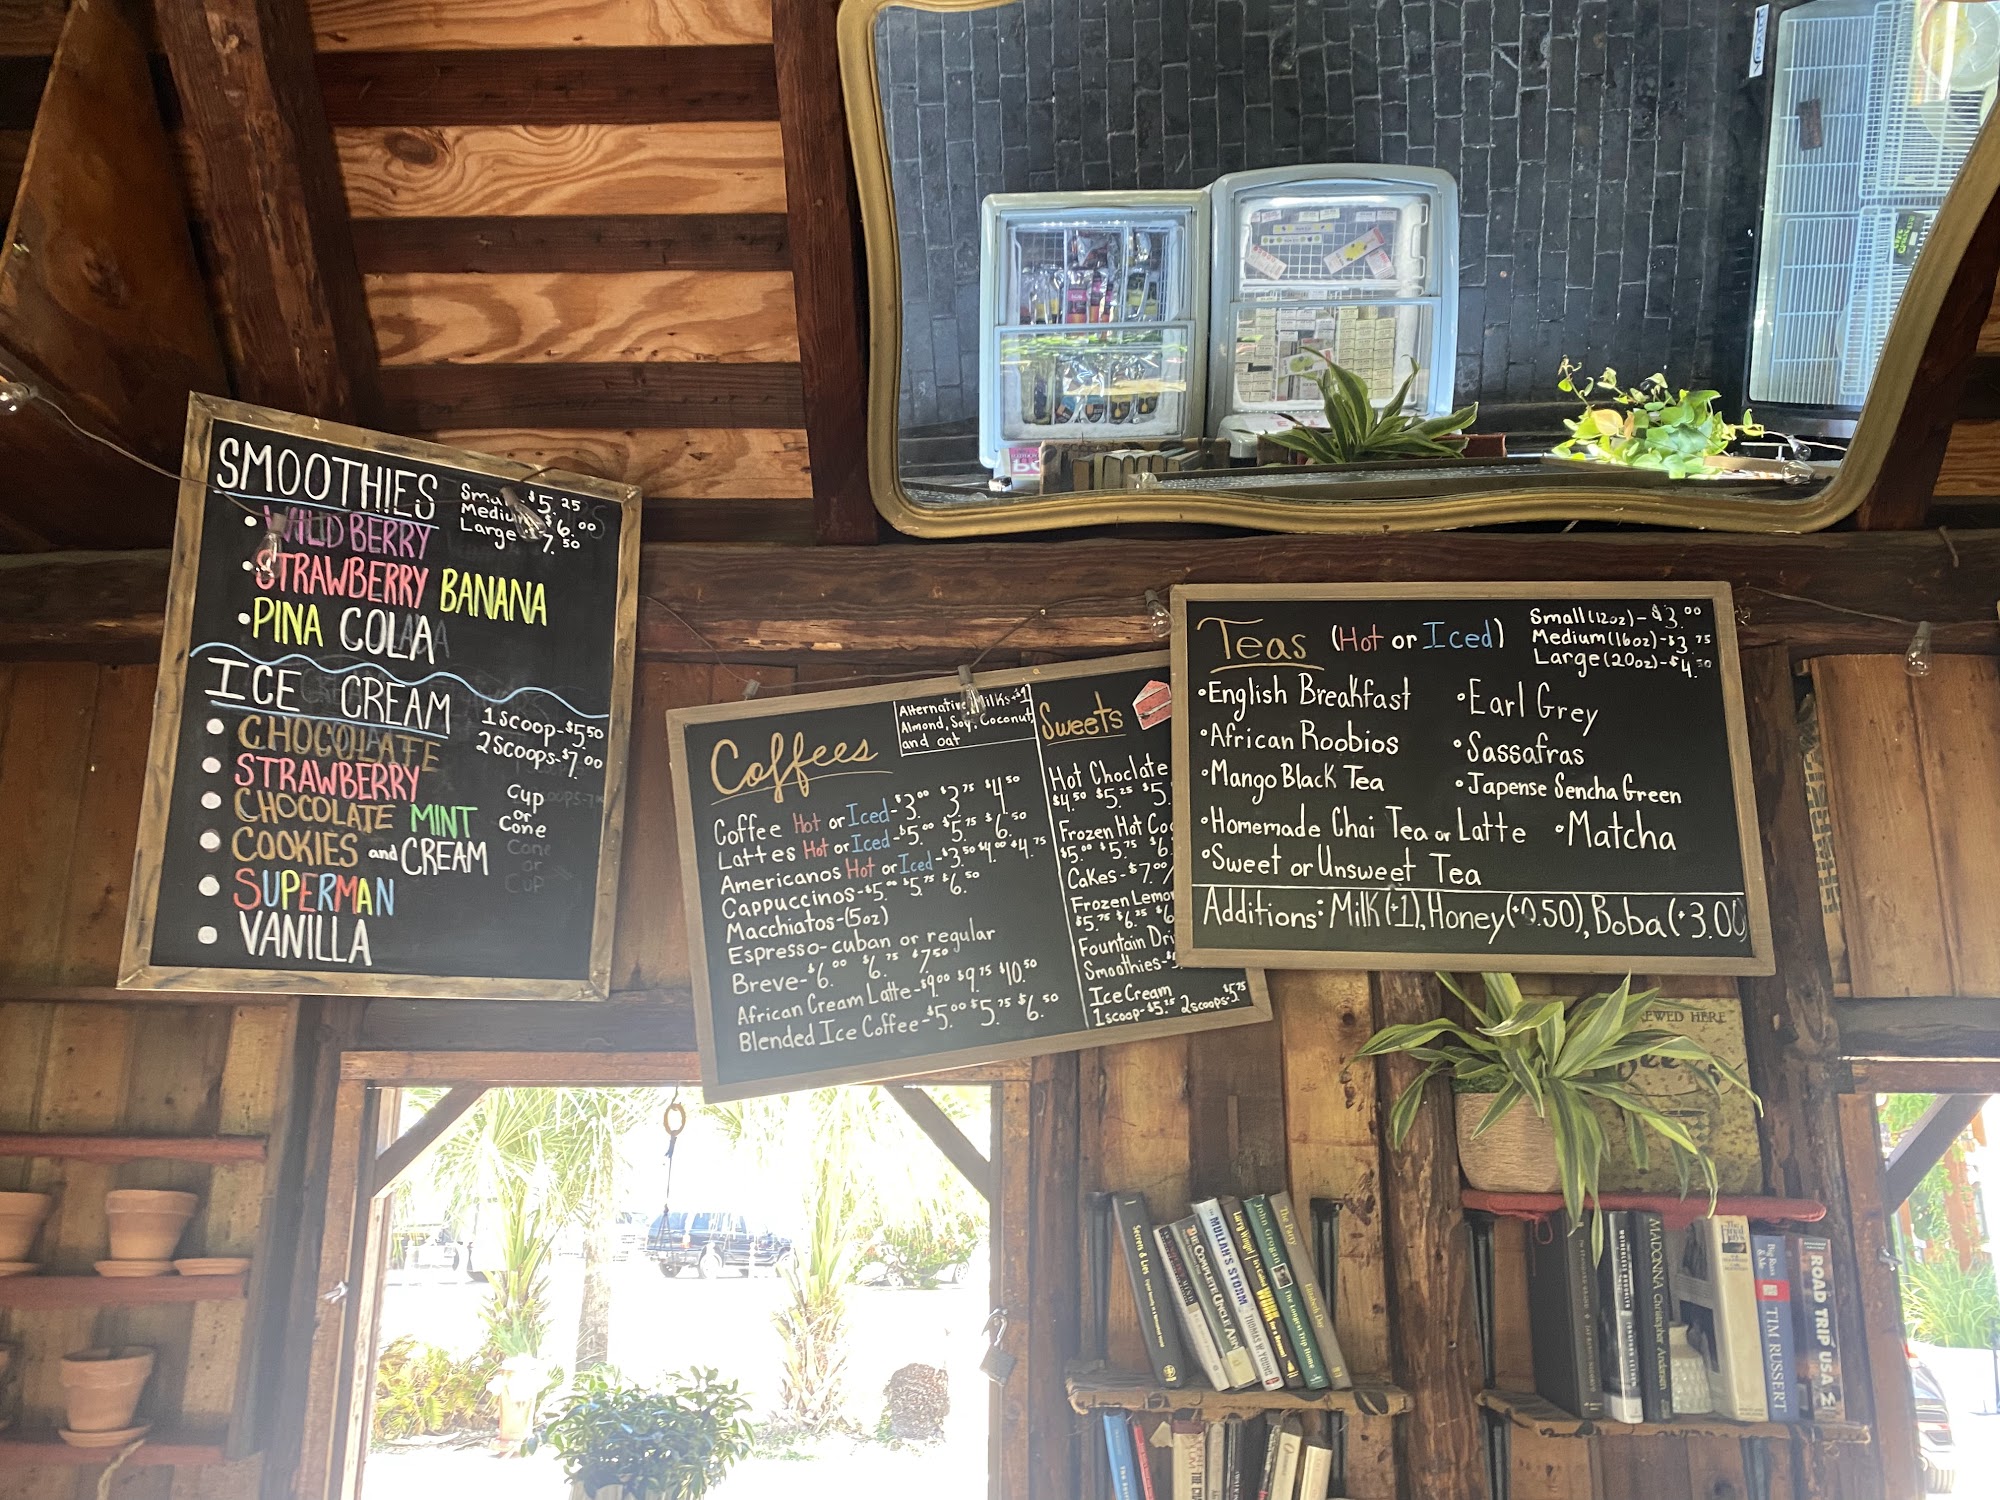 SMOOTHIES
Small $5.25
Medium $6.00
Large $7.50
• WILDBERRY
• STRAWBERRY BANANA
• PINA COLADA
ICE CREAM
1 scoop-$5.50
2 Scoops-$7.00
Cup
or
Cone
CHOCOLATE
STRAWBERRY
CHOCOLATE MINT
COOKIES and CREAM
SUPERMAN
VANILLA
Coffees
Alternative Milks +$1
Almond, Soy, Coconut,
and oat
Coffee Hot or Iced-$3.00 $3.75 $4.50
Lattes Hot or Iced-$5.00 $5.75 $6.50
Americanos Hot or Iced-$3.50 $4.00 $4.75
Cappuccinos-$5.00 $5.75 $6.50
Macchiatos-(5oz)
Espresso-cuban or regular
Breve-$6.00 $6.75 $7.50
African Cream Latte-$9.00 $9.75 $10.50
Blended Ice Coffee-$5.00 $5.75 $6.50
Sweets
Hot Choclate
$4.50 $5.25 $5.
Frozen Hot Coc
$5.00 $5.75 $6.
Cakes-$7.00
Frozen Lemon
$5.75 $6.25 $6
Fountain Dri
Smoothies-$5
Ice Cream
1scoop-$5.25 2scoops-$5.75
Teas (Hot or Iced)
Small(12oz)-$3.00
Medium(16oz)-$3.75
Large(20oz)-$4.50
•English Breakfast
•Earl Grey
•African Roobios
•Sassafras
•Mango Black Tea
•Japense Sencha Green
•Homemade Chai Tea or Latte •Matcha
•Sweet or Unsweet Tea
Additions: Milk(+1), Honey(+0.50), Boba(+3.00)
EWED HERE
Secrets & Lies
MULLAH'S STORM THOMAS W. YOUNG
Larry Winget It's Called WORK for a Reason!
John Grogan The Longest Trip Home
The Party Elizabeth Day
MADONNA Christopher Andersen
Big Russ & Me TIM RUSSERT
ROAD TRIP USA